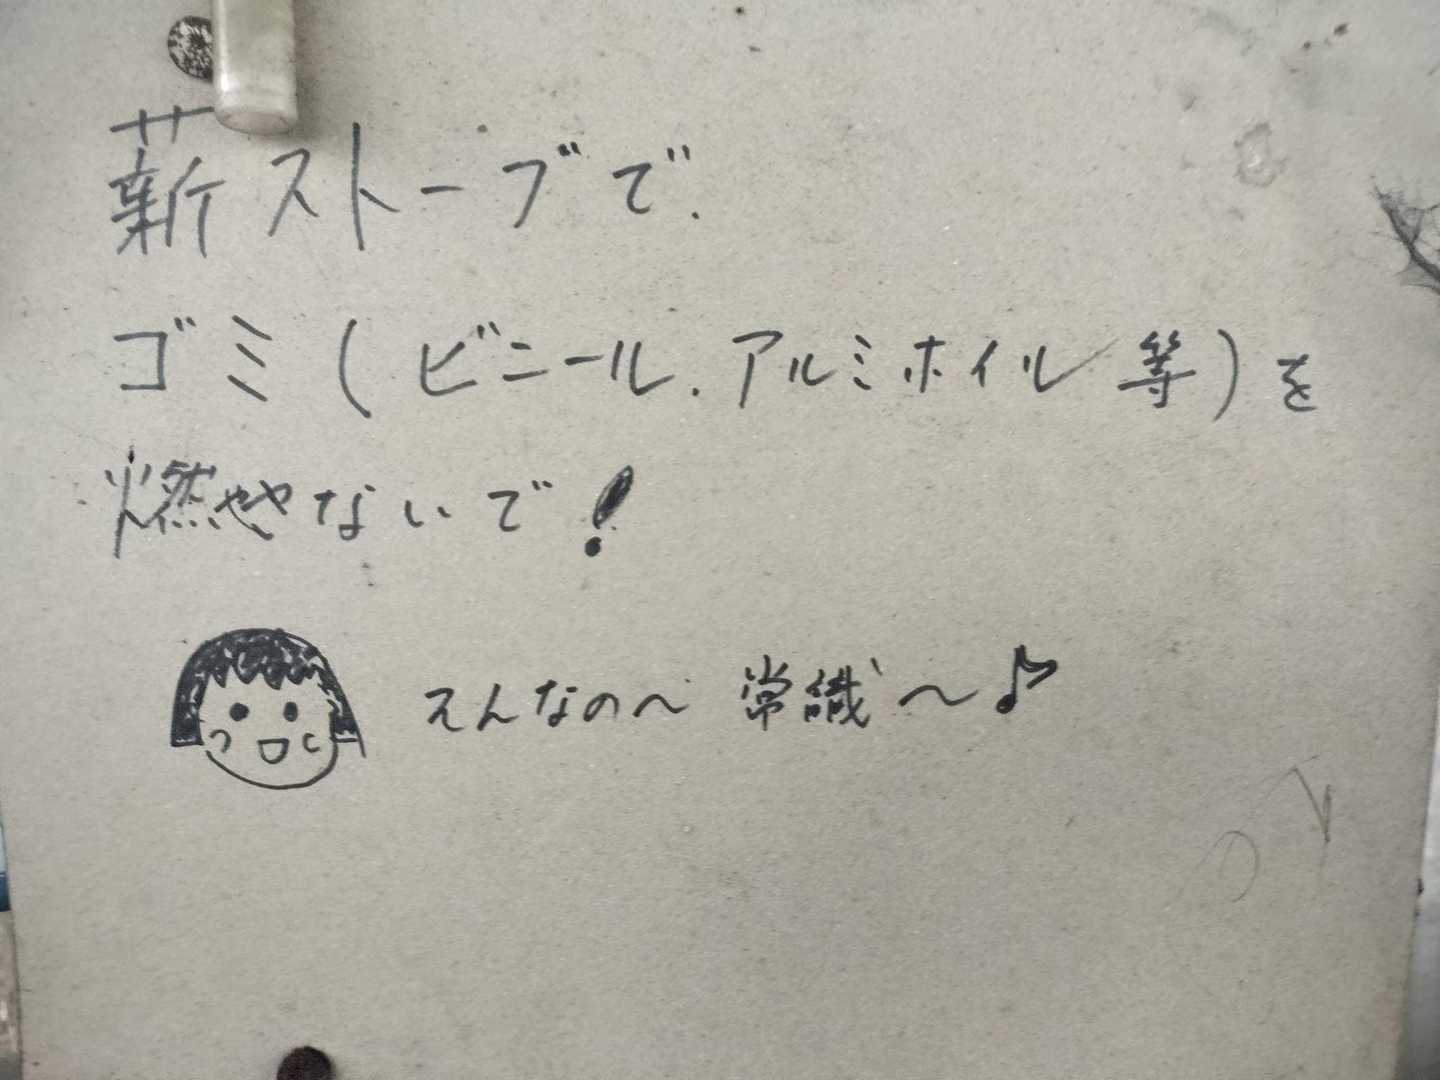 薪ストーブで、
ゴミ(ビニール、アルミホイル等)を
燃やさないで!
そんなの〜 常識〜♪